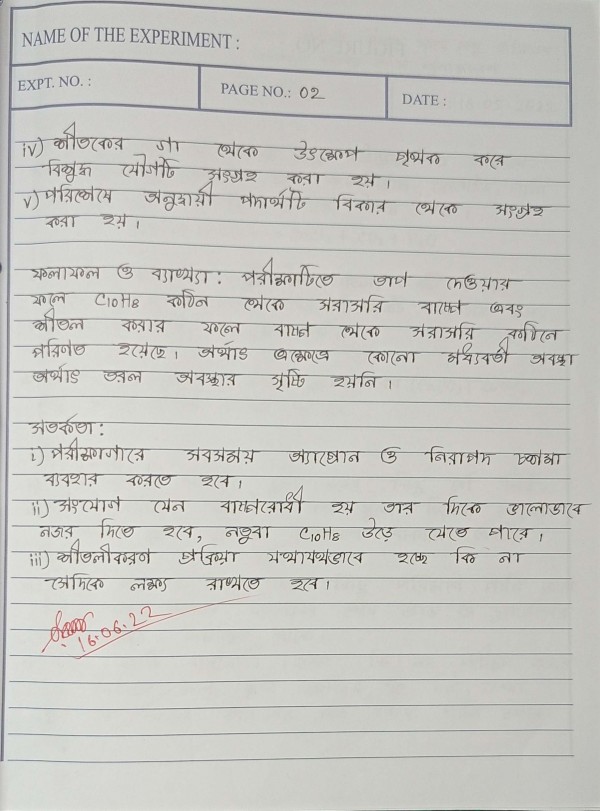 NAME OF THE EXPERIMENT :
EXPT. NO. :
PAGE NO.: 02
DATE :
iv) শীতকের গা থেকে উৎক্ষেপ পৃথক করে
বিশুদ্ধ যৌগটি সংগ্রহ করা হয়।
v) পরিশেষে অনুদ্বায়ী পদার্থটি বিকার থেকে সংগ্রহ
করা হয়।
ফলাফল ও ব্যাখ্যা : পরীক্ষাটিতে তাপ দেওয়ার
ফলে C10H8 কঠিন থেকে সরাসরি বাষ্পে এবং
শীতল করার ফলে বাষ্প থেকে সরাসরি কঠিনে
পরিণত হয়েছে। অর্থাৎ এক্ষেত্রে কোনো মধ্যবর্তী অবস্থা
অর্থাৎ তরল অবস্থার সৃষ্টি হয়নি।
সতর্কতা :
i) পরীক্ষাগারে সবসময় অ্যাপ্রোন ও নিরাপদ চশমা
ব্যবহার করতে হবে।
ii) সংযোগ যেন বাষ্পরোধী হয় তার দিকে ভালোভাবে
নজর দিতে হবে, নতুবা C10H8 উড়ে যেতে পারে।
iii) শীতলীকরণ প্রক্রিয়া যথাযথভাবে হচ্ছে কি না
সেদিকে লক্ষ্য রাখতে হবে।
16.06.22